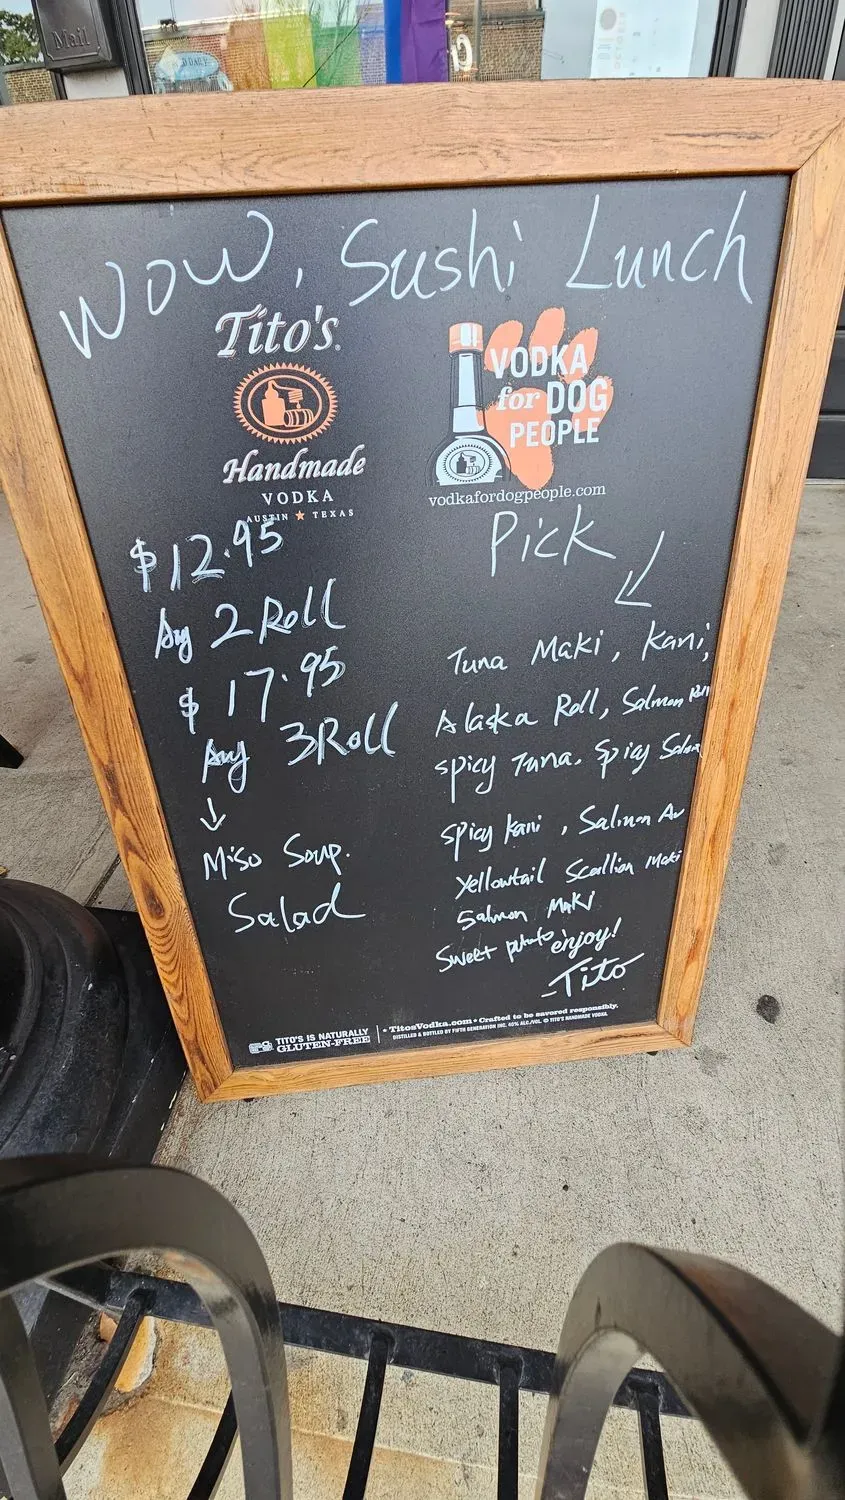 Mail
WOW, Sushi Lunch
Tito's
Handmade
VODKA
AUSTIN ★ TEXAS
VODKA
for DOG
PEOPLE
vodkafordogpeople.com
$12.95
Any 2 Roll
$17.95
Any 3 Roll
↓
Miso Soup.
Salad
Pick
Tuna Maki, Kani,
Alaska Roll, Salmon Roll
Spicy Tuna. Spicy Salmon
Spicy Kani, Salmon Av
Yellowtail Scallion Maki
Salmon Maki
Sweet potato enjoy!
-Tito
TITO'S IS NATURALLY
GLUTEN-FREE
• TitosVodka.com • Crafted to be savored responsibly.
DISTILLED & BOTTLED BY FIFTH GENERATION INC. 40% ALC./VOL. © TITO'S HANDMADE VODKA.